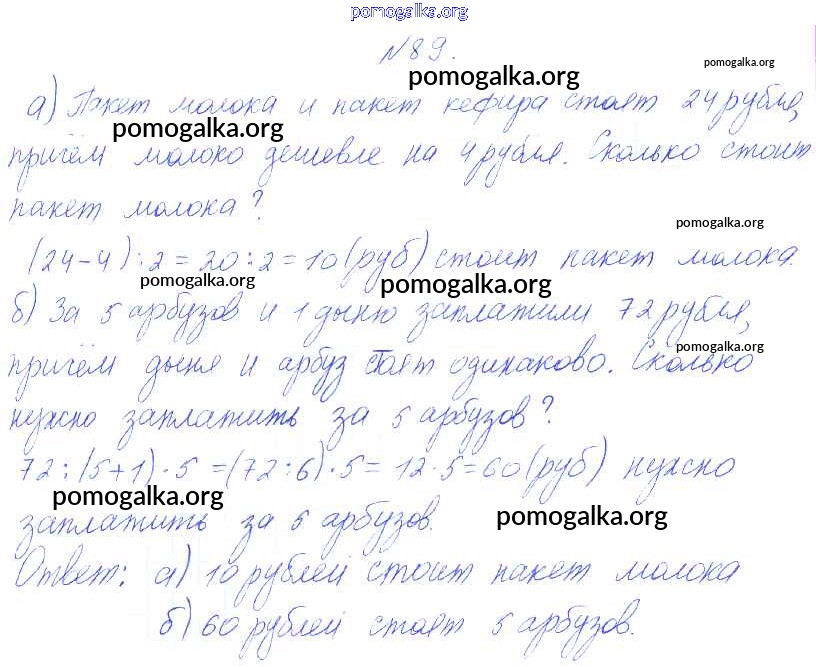 pomogalka.org
№89.
pomogalka.org
pomogalka.org
а) Пакет молока и пакет кефира стоят 24 рубля,
pomogalka.org
причём молоко дешевле на 4 рубля. Сколько стоит
пакет молока?
pomogalka.org
(24-4):2=20:2=10(руб) стоит пакет молока.
pomogalka.org
pomogalka.org
б) За 5 арбузов и 1 дыню заплатили 72 рубля,
pomogalka.org
причём дыня и арбуз стоят одинаково. Сколько
нужно заплатить за 5 арбузов?
72:(5+1)·5=(72:6)·5=12·5=60(руб) нужно
pomogalka.org
pomogalka.org
заплатить за 5 арбузов.
Ответ: а) 10 рублей стоит пакет молока
б) 60 рублей стоят 5 арбузов.